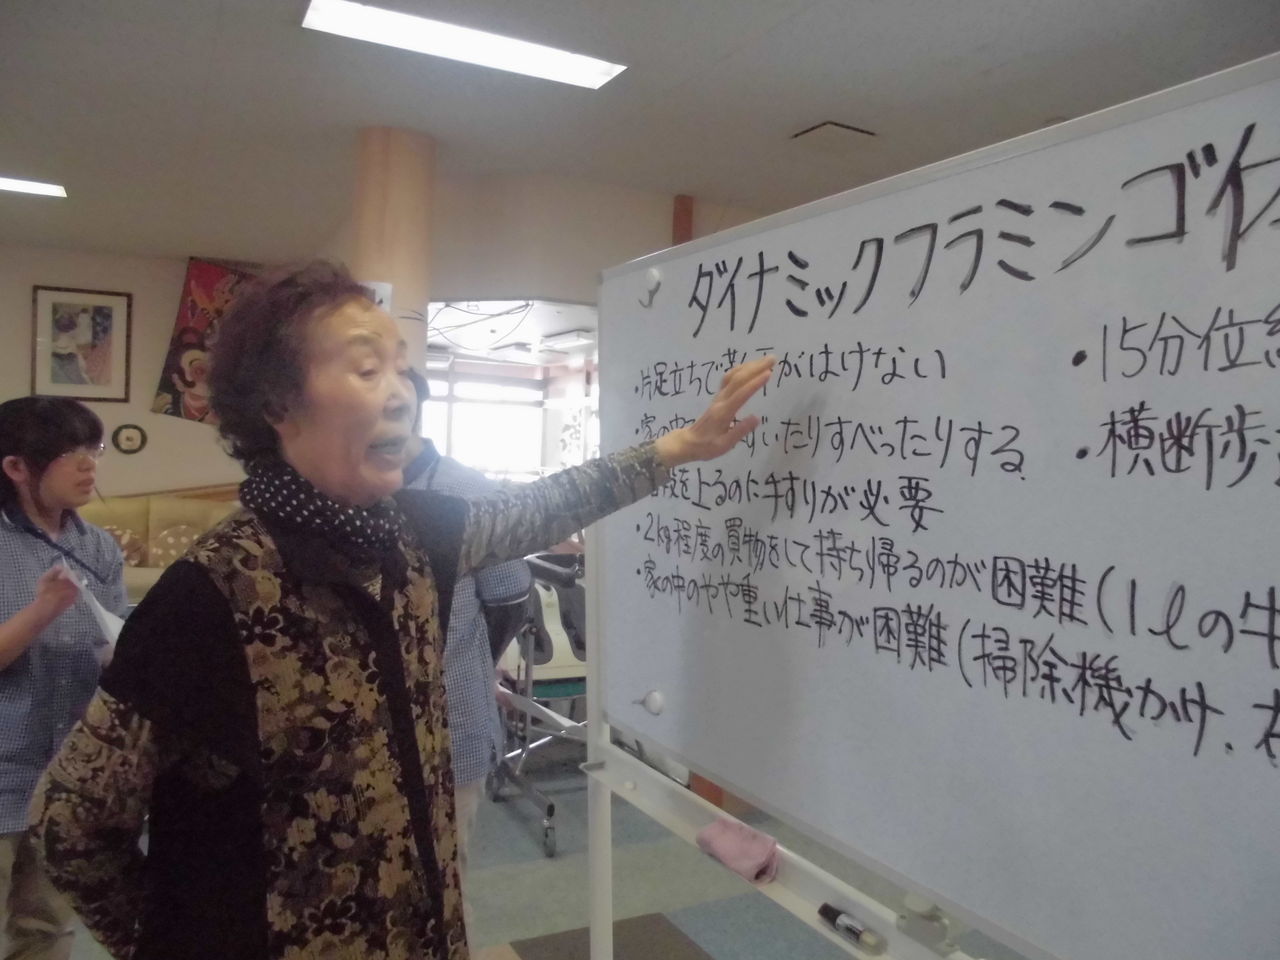 ダイナミックフラミンゴ
・片足立ちで がはけない
・家の いたりすべったりする
を上るのに手すりが必要
・2kg程度の買物をして持ち帰るのが困難(1ℓの牛
・家の中のやや重い仕事が困難(掃除機かけ、
・15分位
・横断歩